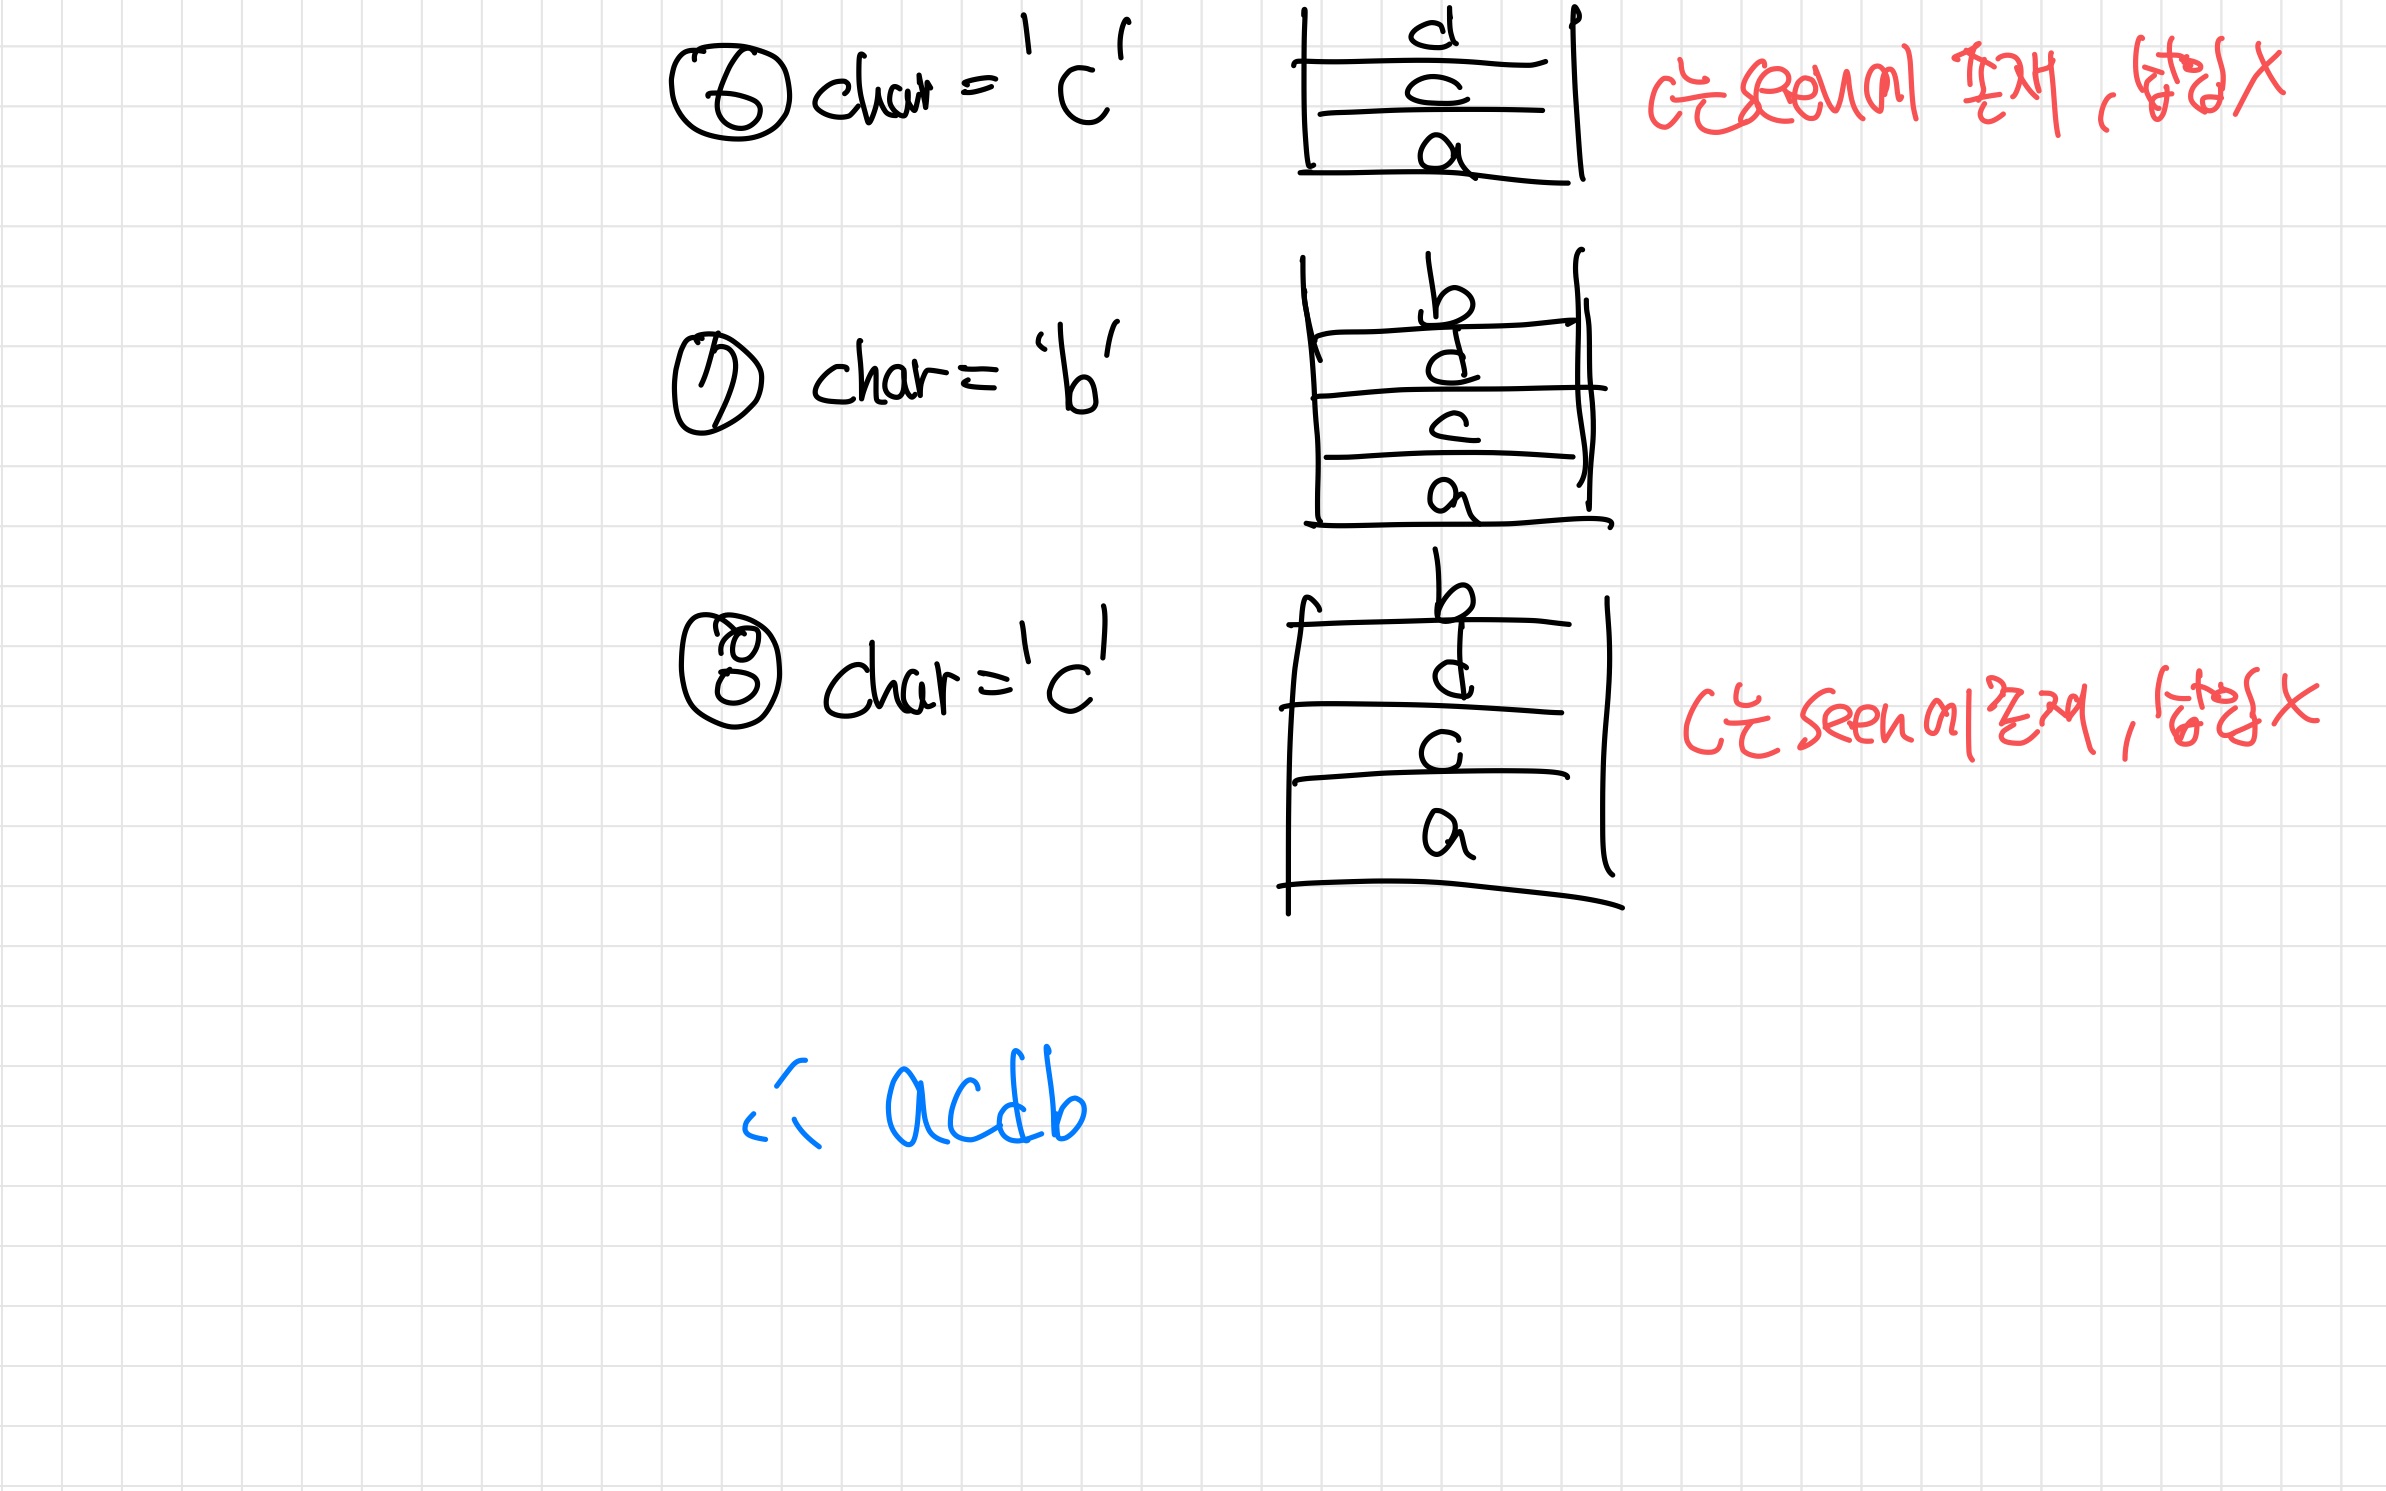 ⑥ char = 'c'
d
c
a
c는 seen에 존재, 변경 X
⑦ char = 'b'
b
d
c
a
⑧ char = 'c'
b
d
c
a
c는 seen에 존재, 변경 X
∴ acdb